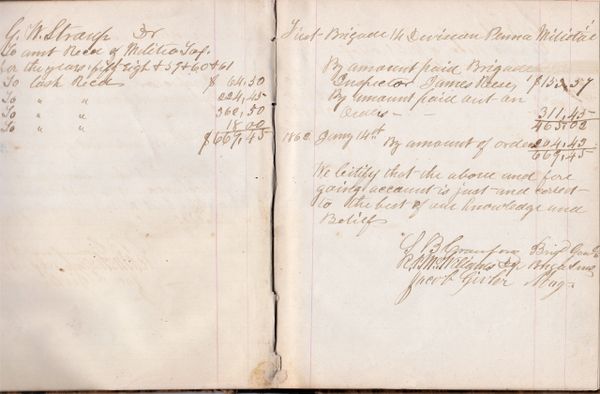 G. W. Stroup Dr
To amt Recd of Militia Tax
for the years fifty Eight & 59 & 60 & 61
To Cash Recd $ 64,50
To " " 224,45
To " " 362,50
To " " 18 00
$669,45
First Brigade 14 Division Penna Militia
By amount paid Brigade
Inspector James Reese $153,57
By amount paid out on
Orders - - 311,45
465,02
1862 Jany 14th By amount of orders 204,43
669,45
We Certify that the above and fore
going account is just and correct
to the best of our Knowledge and
Belief
Brig
Jacob Maj.